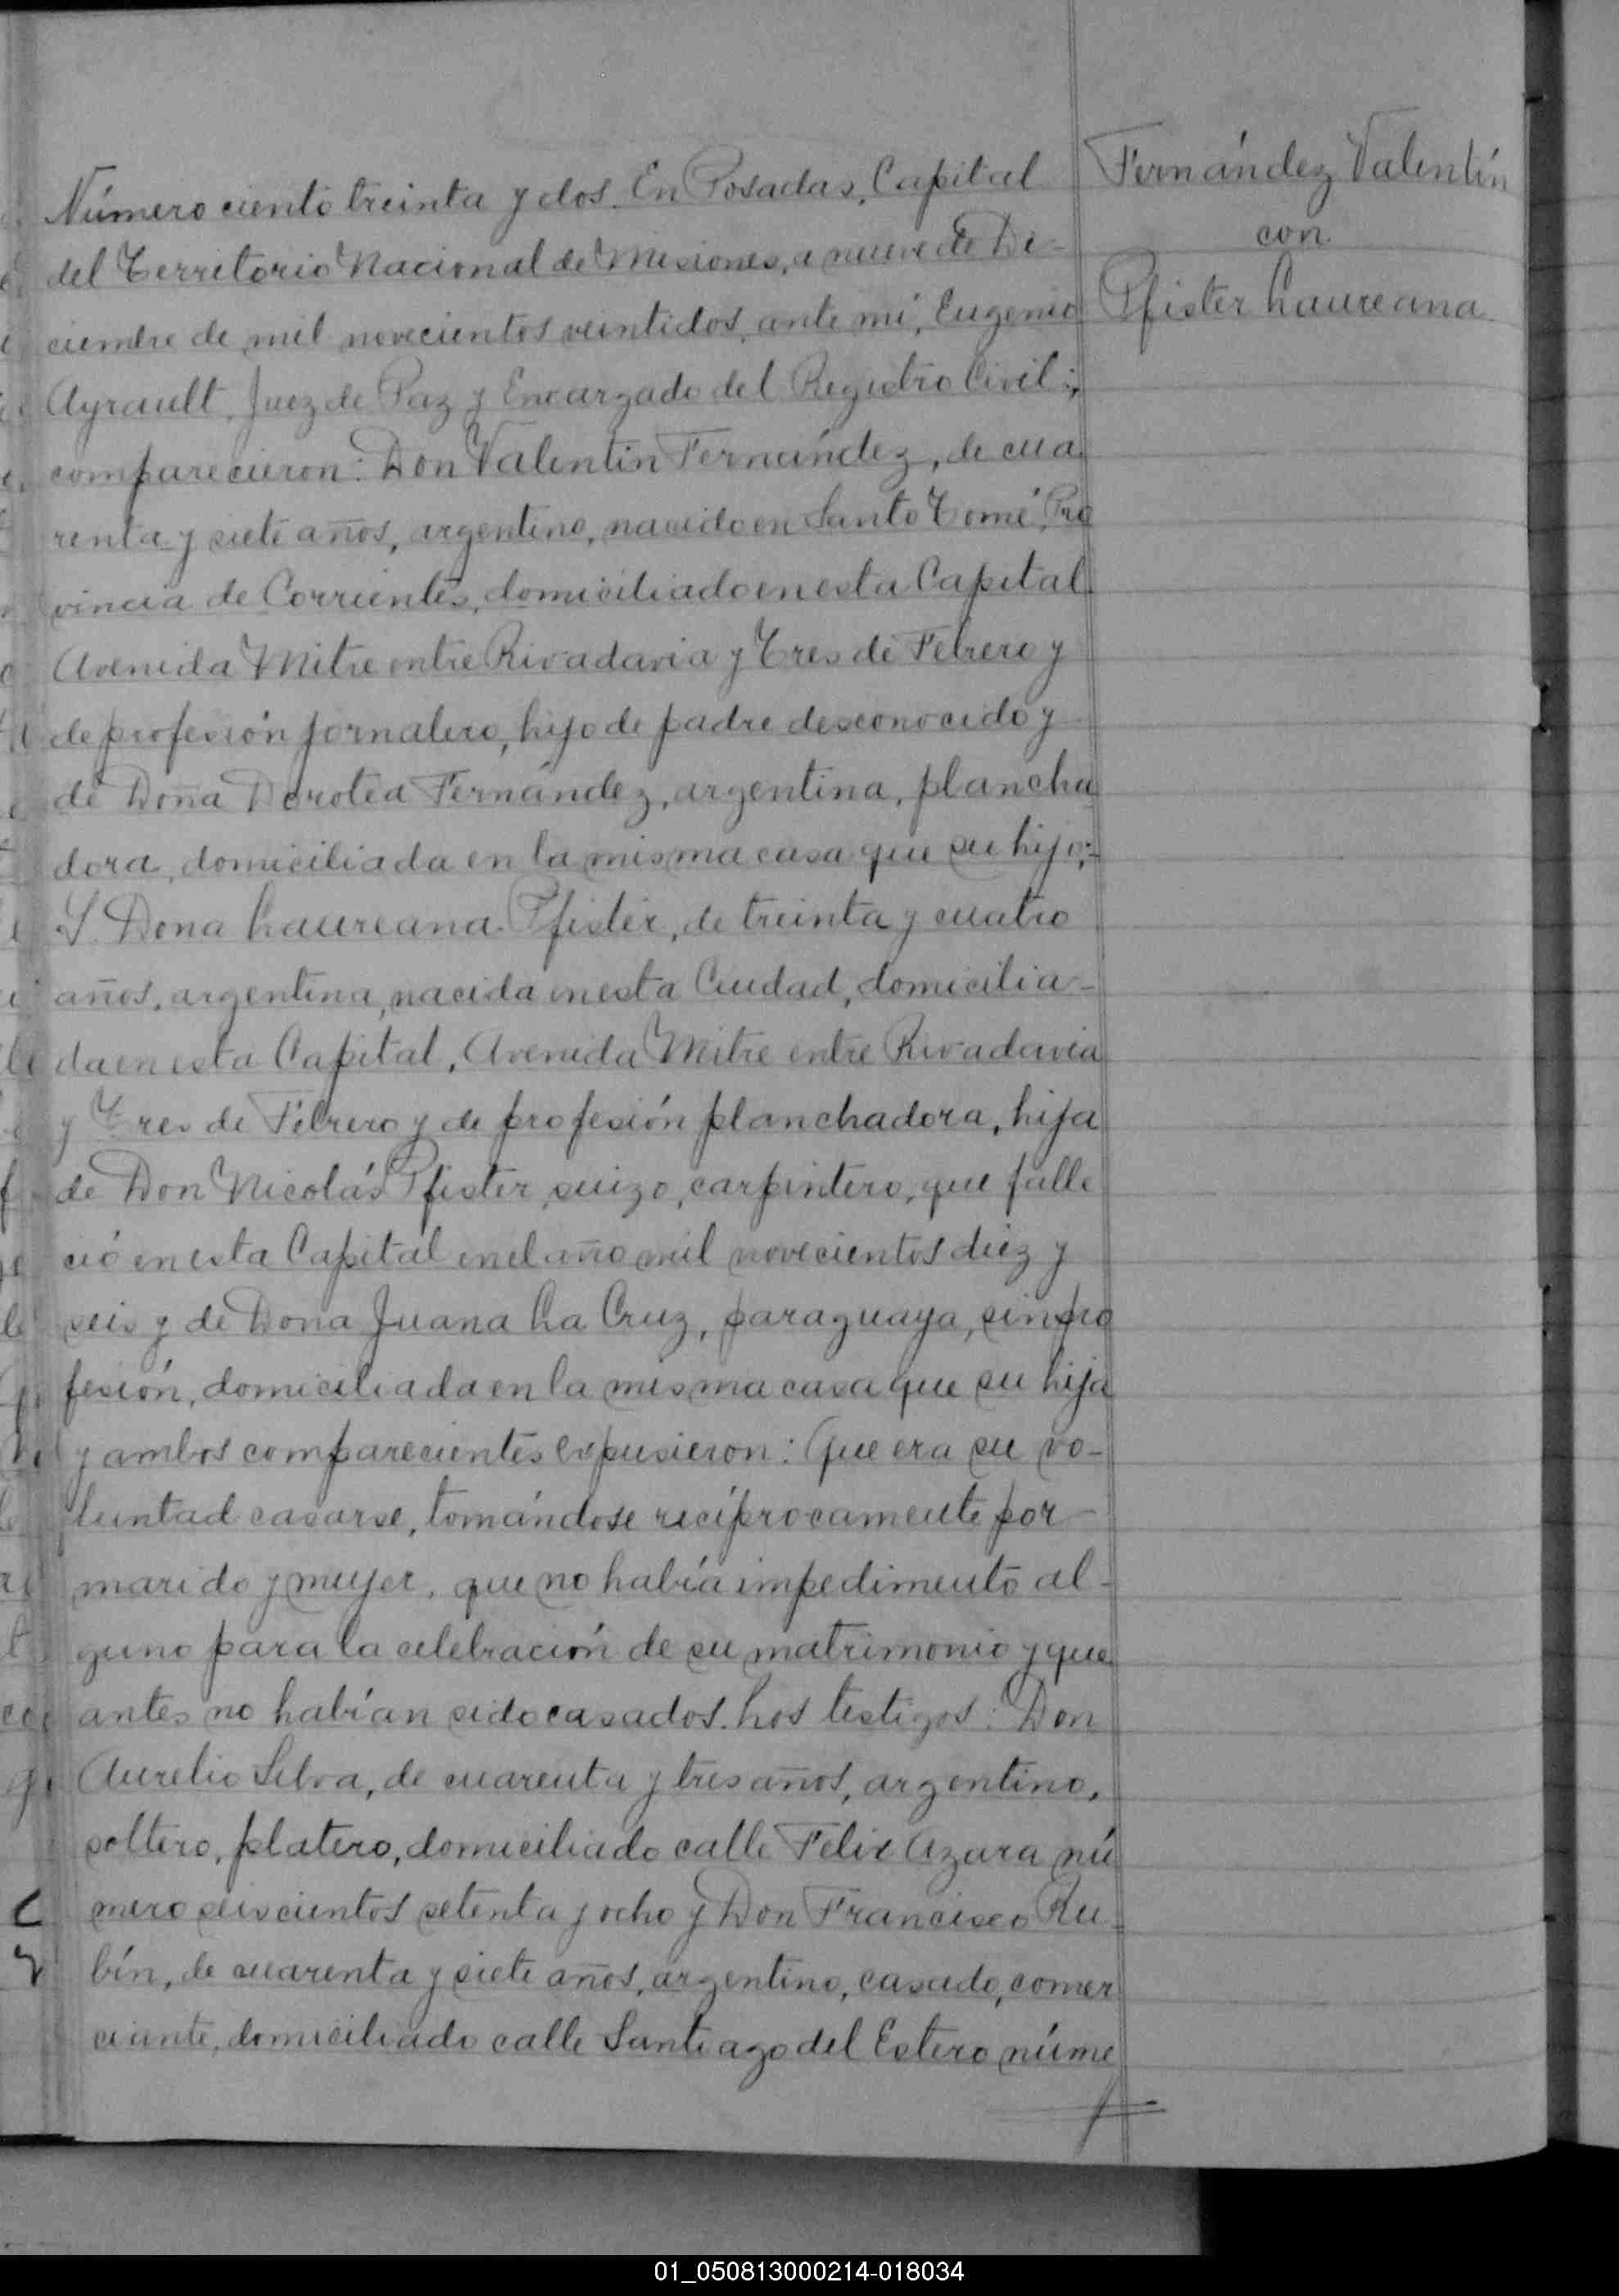 Fernández Valentín
con
Pfister Laureana
Número ciento treinta y dos. En Posadas, Capital
del Territorio Nacional de Misiones, a nueve de Di-
ciembre de mil novecientos veintidos, ante mí, Eugenio
Ayrault, Juez de Paz y Encargado del Registro Civil;
comparecieron: Don Valentín Fernández, de cua
renta y siete años, argentino, nacido en Santo Tomé, Pro
vincia de Corrientes, domiciliado en esta Capital
Avenida Mitre entre Rivadavia y Tres de Febrero y
de profesión jornalero, hijo de padre desconocido y
de Doña Dorotea Fernández, argentina, plancha
dora, domiciliada en la misma casa que su hijo;-
Y Doña Laureana Pfister, de treinta y cuatro
años, argentina, nacida en esta Ciudad, domicilia-
da en esta Capital, Avenida Mitre entre Rivadavia
y Tres de Febrero y de profesión planchadora, hija
de Don Nicolás Pfister, suizo, carpintero, que falle
ció en esta Capital en el año mil novecientos diez y
seis y de Doña Juana La Cruz, paraguaya, sin pro
fesión, domiciliada en la misma casa que su hija
y ambos comparecientes expusieron: Que era su vo-
luntad casarse, tomándose recíprocamente por
marido y mujer, que no había impedimento al-
guno para la celebración de su matrimonio y que
antes no habían sido casados. Los testigos: Don
Aurelio Silva, de cuarenta y tres años, argentino,
soltero, platero, domiciliado calle Felix Azara nú
mero seiscientos setenta y ocho y Don Francisco Ru-
bín, de cuarenta y siete años, argentino, casado, comer
ciante, domiciliado calle Santiago del Estero núme
01_050813000214-018034